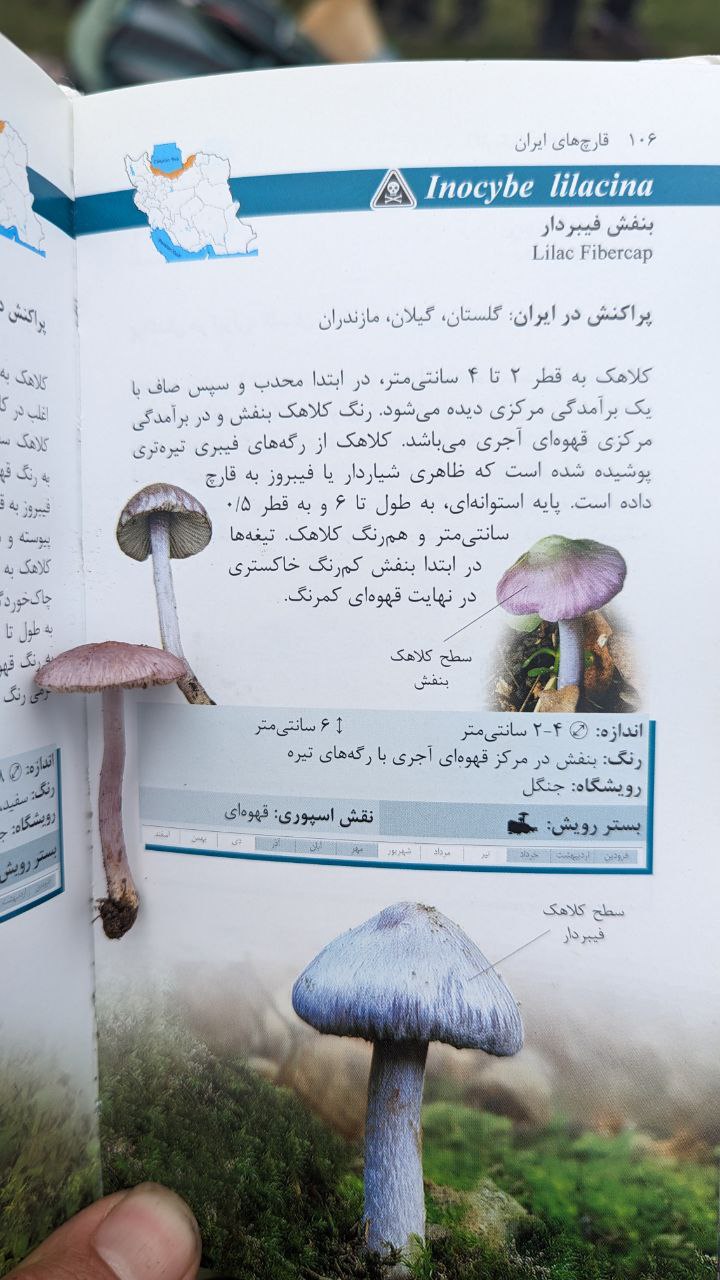 ۱۰۶ قارچ‌های ایران
Inocybe lilacina
بنفش فیبردار
Lilac Fibercap
پراکنش در ایران: گلستان، گیلان، مازندران
کلاهک به قطر ۲ تا ۴ سانتی‌متر، در ابتدا محدب و سپس صاف با
یک برآمدگی مرکزی دیده می‌شود. رنگ کلاهک بنفش و در برآمدگی
مرکزی قهوه‌ای آجری می‌باشد. کلاهک از رگه‌های فیبری تیره‌تری
پوشیده شده است که ظاهری شیاردار یا فیبروز به قارچ
داده است. پایه استوانه‌ای، به طول تا ۶ و به قطر ۰/۵
سانتی‌متر و هم‌رنگ کلاهک. تیغه‌ها
در ابتدا بنفش کم‌رنگ خاکستری
در نهایت قهوه‌ای کمرنگ.
سطح کلاهک
بنفش
اندازه: ۴-۲ سانتی‌متر ۶ سانتی‌متر
رنگ: بنفش در مرکز قهوه‌ای آجری با رگه‌های تیره
رویشگاه: جنگل
بستر رویش: نقش اسپوری: قهوه‌ای
فروردین اردیبهشت خرداد تیر مرداد شهریور مهر آبان آذر دی بهمن اسفند
سطح کلاهک
فیبردار
پراکنش د
کلاهک به
اغلب در کا
کلاهک س
به رنگ قه
فیبروز به ق
پیوسته و
کلاهک به
چاک‌خوردگ
به طول تا
به رنگ قه
اندازه:
رنگ: سفید
رویشگاه: ج
بستر رویش